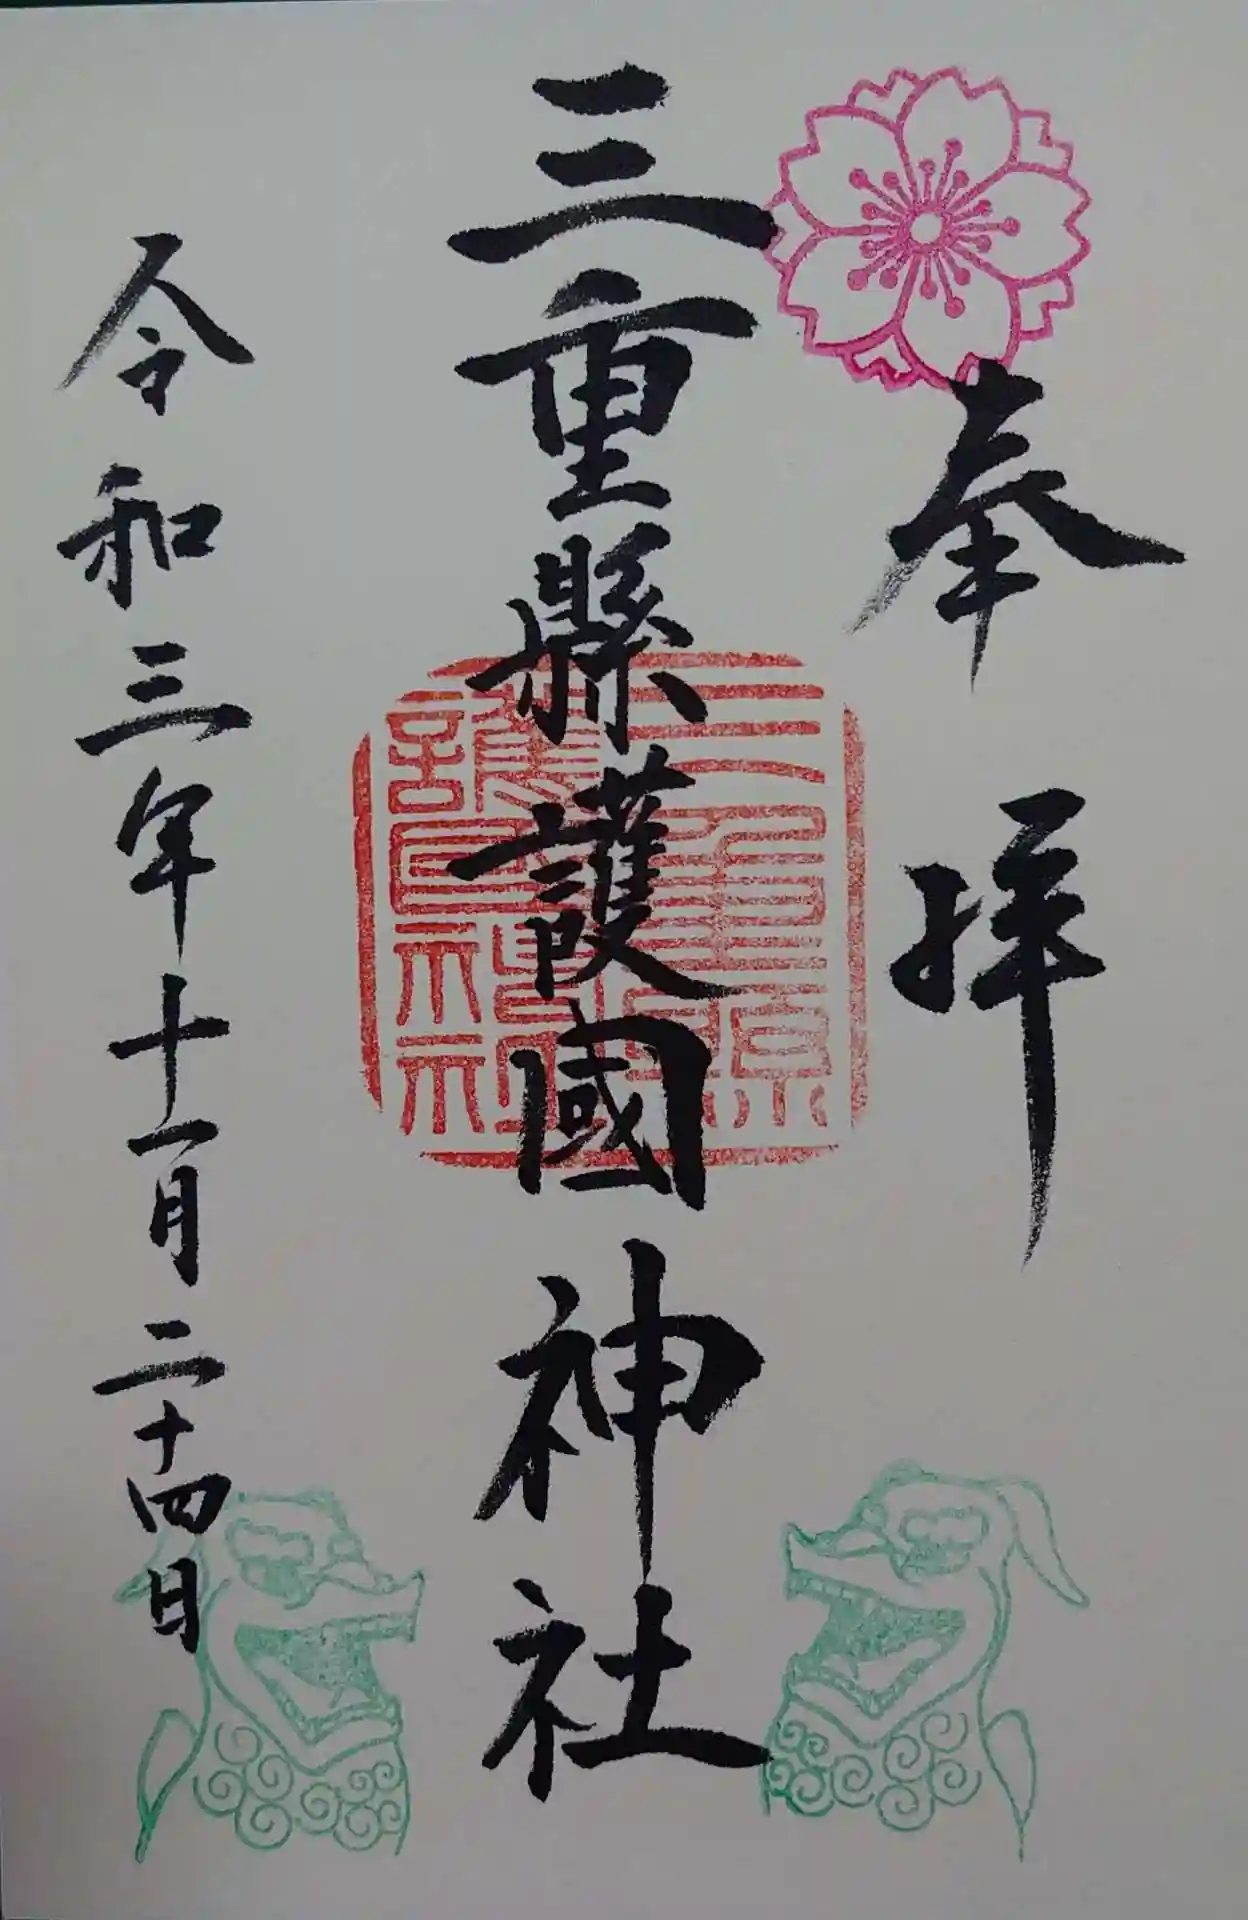 奉拝
三重縣護國神社
令和三年十一月二十四日
三重県護国神社